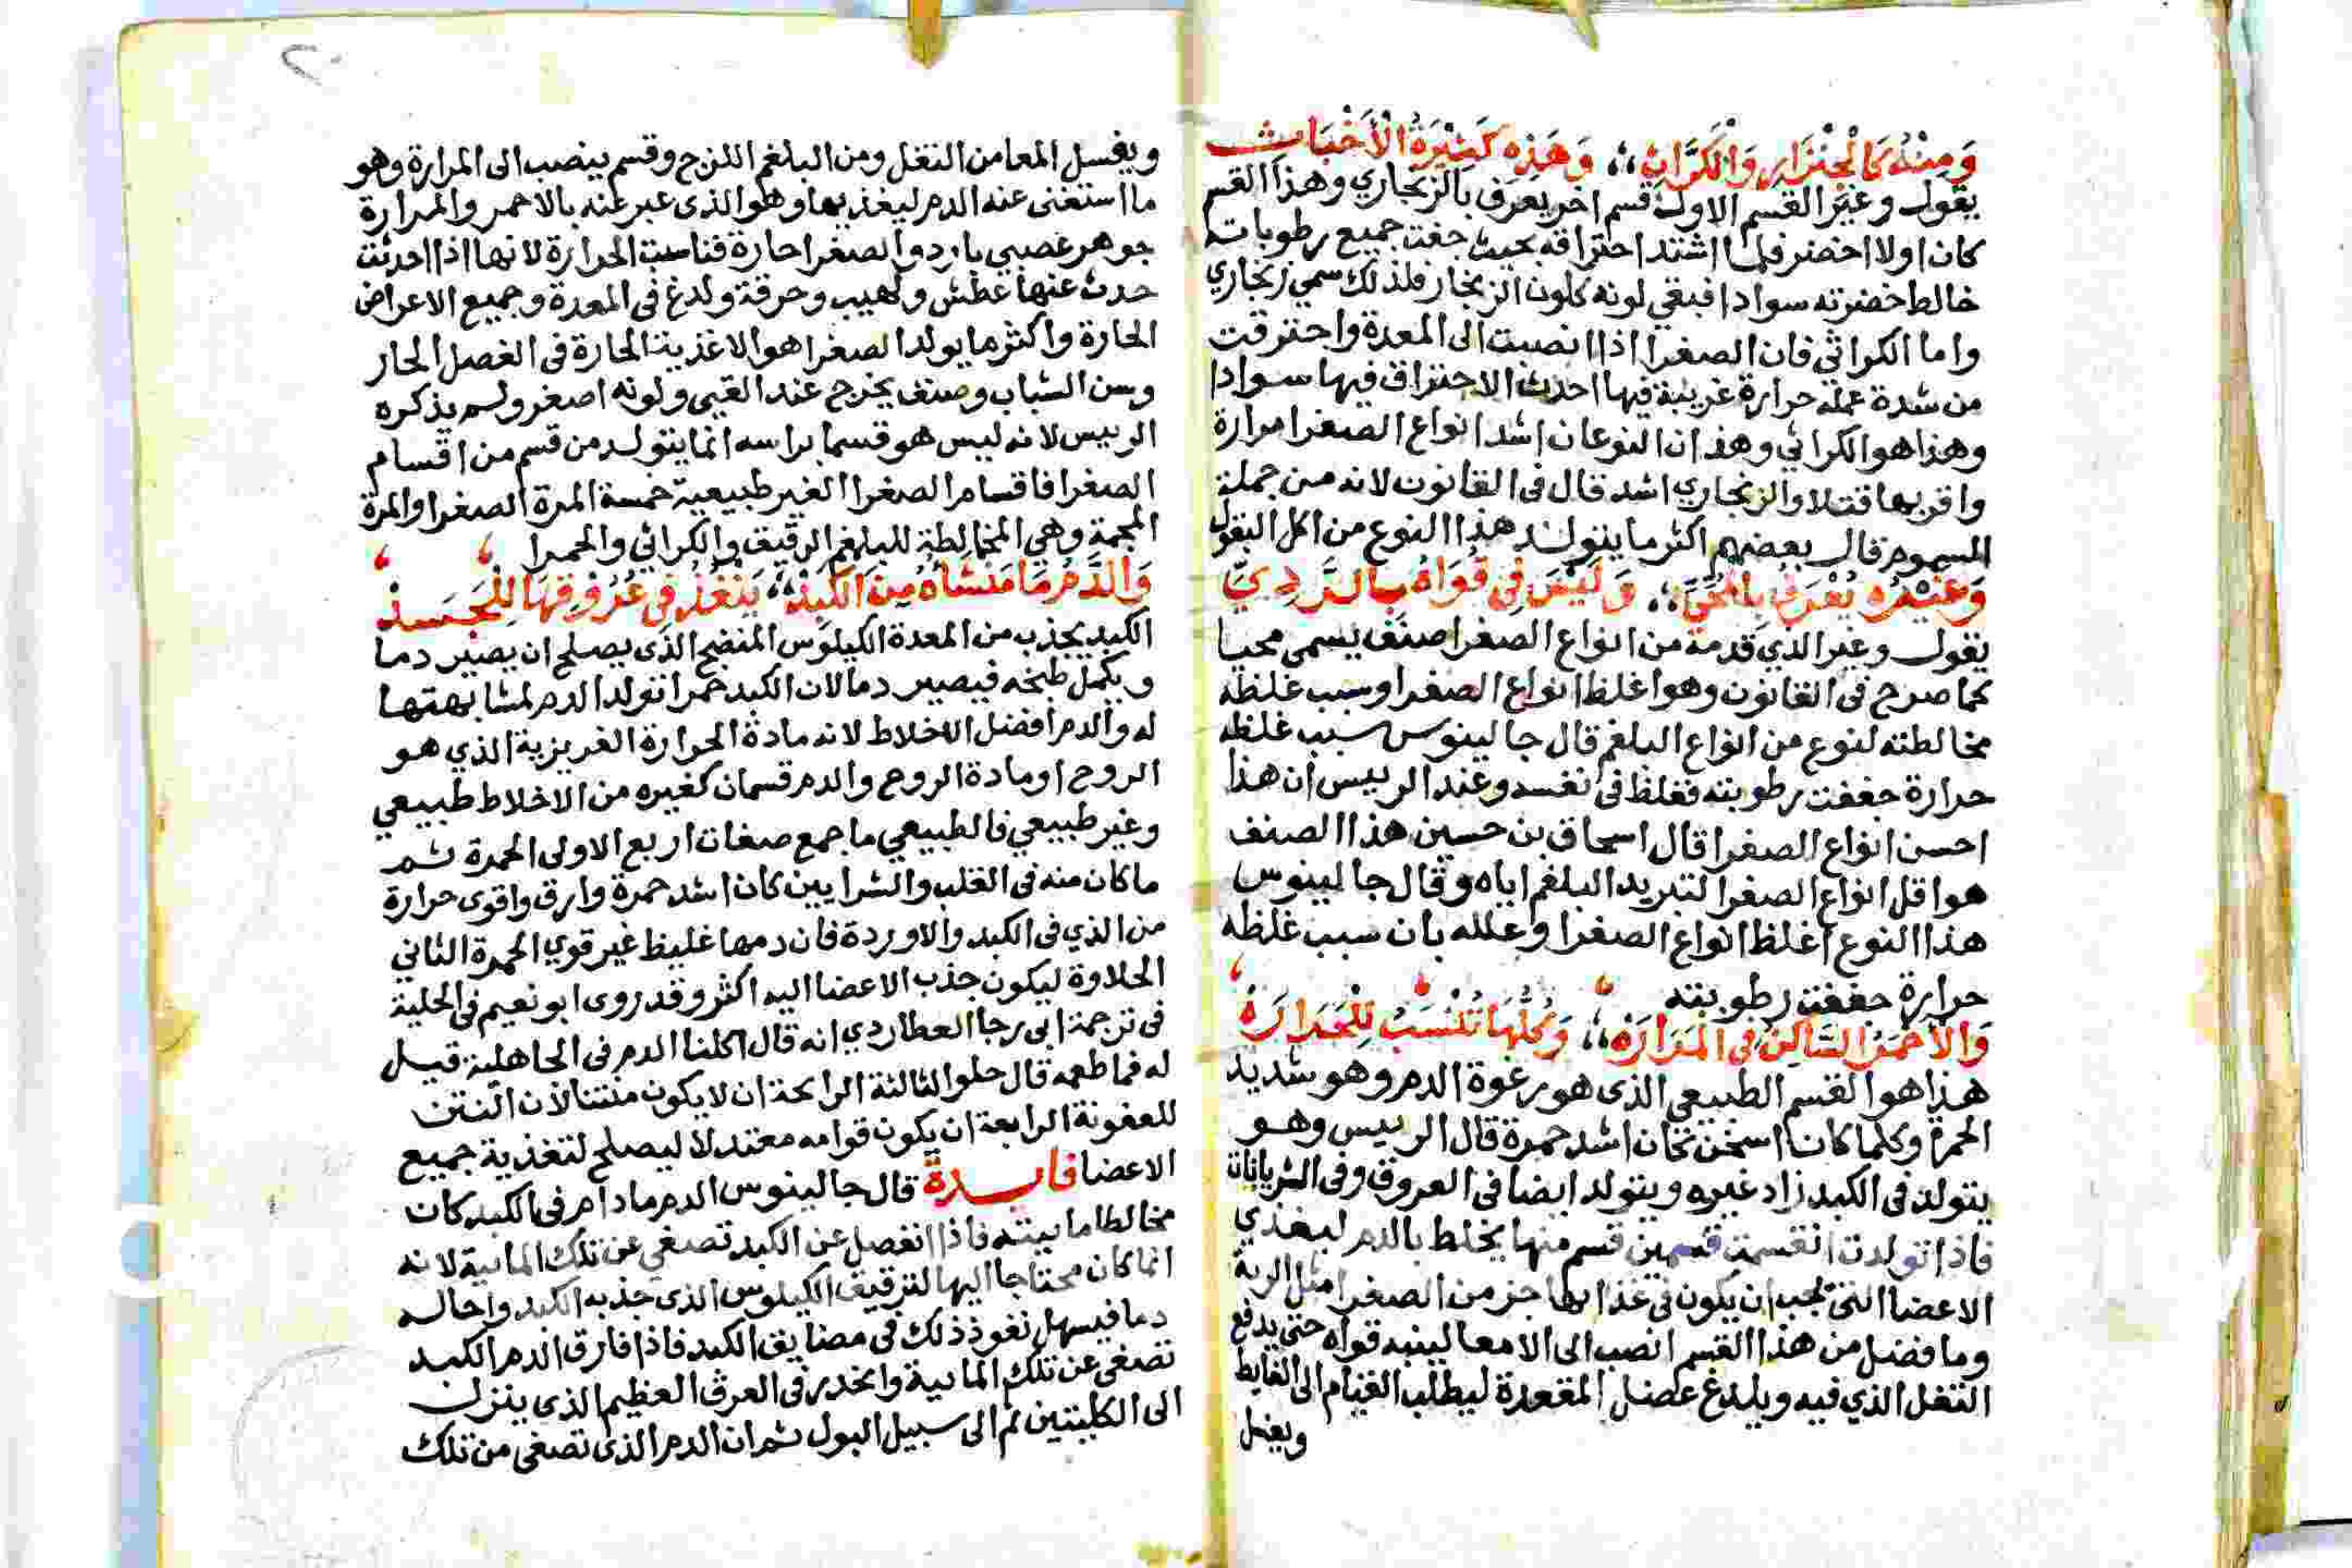 وَمِنْهُ كَالْجِنْزَارِ وَالْكَرَّاثِ ،، وَهَذِهِ كَثِيرَةُ الْأَخْبَاثِ
يقول وغير القسم الاول قسم اخر يعرف بالزنجاري وهذا القسم
كان اولا اخضر فلما اشتد احتراقه بحيث جفت جميع رطوباته
خالط خضرته سوادا فبقي لونه كلون الزنجار فلذلك سمي زنجاري
واما الكراثي فان الصفرا اذا انصبت الى المعدة واحترقت
من شدة عمله حرارة غريبة فيها احدث الاحتراق فيها سوادا
وهذا هو الكراثي وهذان النوعان اشد انواع الصفرا مرارة
واقربها قتلا والزنجاري اشد قال في القانون لانه من جملة
السموم قال بعضهم اكثر ما يتولد هذا النوع من اكل البقول
وَغَيْرُهُ يُعْرَفُ بِالْمُحِّيِّ ،، وَلَيْسَ فِي قُوَاهُ بِالرَّدِيِّ
يقول وغير الذي قدمه من انواع الصفرا صنف يسمى محيا
كما صرح في القانون وهو اغلظ انواع الصفرا وسبب غلظه
مخالطته لنوع من انواع البلغم قال جالينوس سبب غلظه
حرارة جففت رطوبته فغلظ في نفسه وعند الرييس ان هذا
احسن انواع الصفرا قال اسحاق بن حسين هذا الصنف
هو اقل انواع الصفرا لتبريد البلغم اياه وقال جالينوس
هذا النوع اغلظ انواع الصفرا وعلله بان سبب غلظه
حرارة جففت رطوبته
وَالْأَحْمَرُ السَّاكِنُ فِي الْمَرَارَهْ ،، وَكُلُّهَا تُنْسَبُ لِلْحَرَارَهْ
هذا هو القسم الطبيعي الذى هو رغوة الدم وهو شديد
الحمرة وكلما كان اسخن كان اشد حمرة قال الرييس وهو
يتولد في الكبد زاد غيره ويتولد ايضا في العروق وفي الشريانات
فاذا تولدت انقسمت قسمين قسم منها يخلط بالدم ليغذي
الاعضا التي يجب ان يكون في غذايها جز من الصفرا مثل الرية
وما فضل من هذا القسم انصب الى الامعا لينبه قواه حتى يدفع
الثفل الذي فيه ويلدغ عضل المقعدة ليطلب القيام الى الغايط
ويغسل
ويغسل المعا من الثفل ومن البلغم اللزج وقسم ينصب الى المرارة وهو
ما استغنى عنه الدم ليغذيها وهو الذى عبر عنه بالاحمر والمرارة
جوهر عصبي بارد والصفرا حارة فناسبت الحرارة لانها اذا احدثت
حدث عنها عطش ولهيب وحرقة ولدغ في المعدة وجميع الاعراض
الحارة واكثر ما يولد الصفرا هو الاغذية الحارة في الفصل الحار
وسن الشباب وصنف يخرج عند القيى ولونه اصفر ولم يذكره
الرييس لانه ليس هو قسما براسه انما يتولد من قسم من اقسام
الصفرا فاقسام الصفرا الغير طبيعية خمسة المرة الصفرا والمرة
المحية وهي المخالطة للبلغم الرقيق والكراثي والحمرا
وَالدَّمُ مَا مَنْشَأهُ مِنَ الْكَبِدْ ،، يَنْفُذُ فِي عُرُوقِهَا لِلْجَسَدْ
الكبد يجذب من المعدة الكيلوس المنضج الذي يصلح ان يصير دما
ويكمل طبخه فيصير دما لان الكبد حمرا تولد الدم لمشابهتها
له والدم افضل الاخلاط لانه مادة الحرارة الغريزية الذي هو
الروح او مادة الروح والدم قسمان كغيره من الاخلاط طبيعي
وغير طبيعي فالطبيعي ما جمع صفات اربع الاولى الحمرة ثم
ما كان منه في القلب والشرايين كان اشد حمرة وارق واقوى حرارة
من الذي في الكبد والاوردة فان دمها غليظ غير قوي الحمرة الثاني
الحلاوة ليكون جذب الاعضا اليه اكثر وقد روى ابو نعيم في الحلية
في ترجمة ابى رجا العطاردي انه قال اكلنا الدم في الجاهلية قيل
له فما طعمه قال حلو الثالثة الرايحة ان لا يكون منتنا لان النتن
للعفونة الرابعة ان يكون قوامه معتدلا ليصلح لتغذية جميع
الاعضا فايدة قال جالينوس الدم مادام في الكبد كان
مخالطا ماييته فاذا انفصل عن الكبد تصفى عن تلك المايية لانه
انما كان محتاجا اليها لترقيق الكيلوس الذى جذبه الكبد واحاله
دما فيسهل نفوذ ذلك في مضايق الكبد فاذا فارق الدم الكبد
تصفى عن تلك المايية وانحدر في العرق العظيم الذى ينزل
الى الكليتين ثم الى سبيل البول ثم ان الدم الذى تصفى من تلك